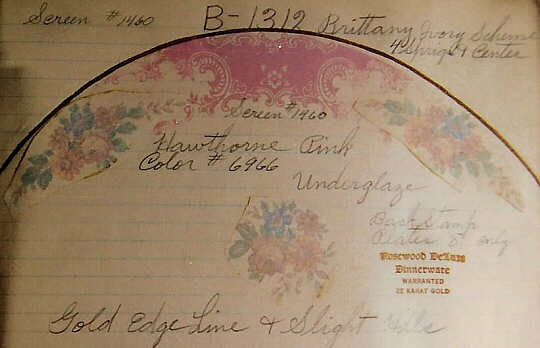 Screen #1460
B-1312 Brittany Ivory Scheme
4 Sprig & Center
Screen #1460
Hawthorne Pink
Color # 6966
Underglaze
Back Stamp
Plates 8" only
Rosewood DeLuxe
Dinnerware
WARRANTED
22 KARAT GOLD
Gold Edge Line & Slight